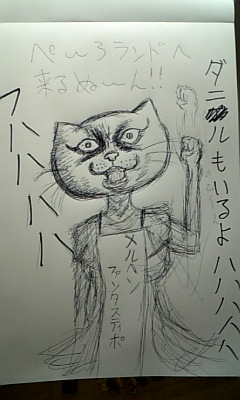 ぺいろランドへ
来るぬーん!!
ダニエルもいるよ ハハハハハ
ハハハハハ
メルヘン
ファンタスティポ